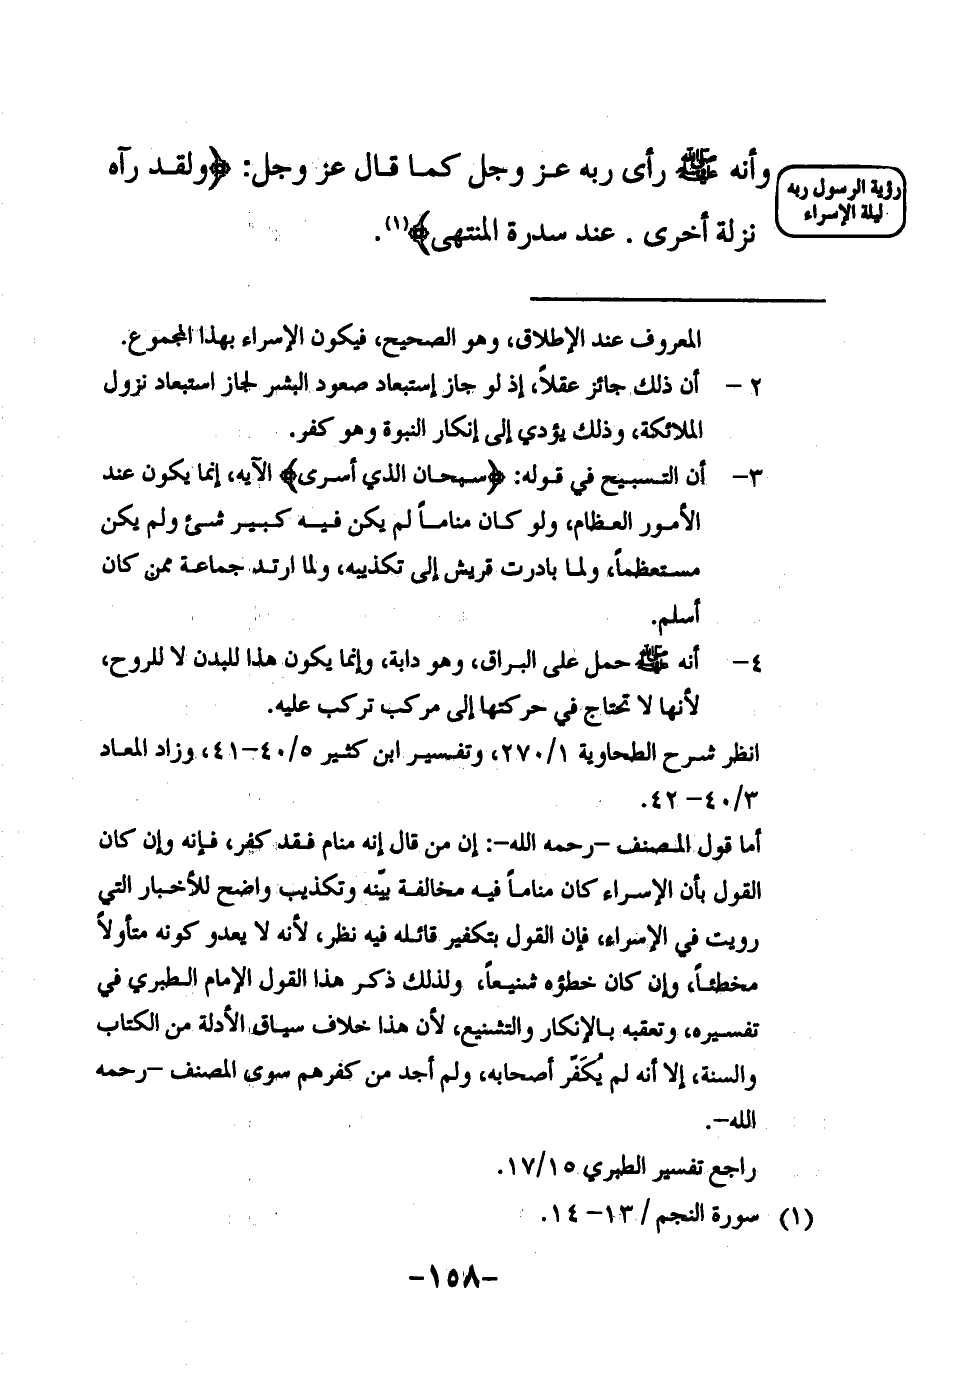 رؤية الرسول ربه
ليلة الإسراء
وأنه ﷺ رأى ربه عز وجل كما قال عز وجل: ﴿ولقد رآه
نزلة أخرى . عند سدرة المنتهى﴾(١).
المعروف عند الإطلاق، وهو الصحيح، فيكون الإسراء بهذا المجموع.
٢ – أن ذلك جائز عقلاً، إذ لو جاز إستبعاد صعود البشر لجاز استبعاد نزول
الملائكة، وذلك يؤدي إلى إنكار النبوة وهو كفر.
٣– أن التسبيح في قوله: ﴿سبحان الذي أسرى﴾ الآيه، إنما يكون عند
الأمور العظام، ولو كان مناماً لم يكن فيه كبير شئ ولم يكن
مستعظماً، ولما بادرت قريش إلى تكذيبه، ولما ارتد جماعة ممن كان
أسلم.
٤– أنه ﷺ حمل على البراق، وهو دابة، وإنما يكون هذا للبدن لا للروح،
لأنها لا تحتاج في حركتها إلى مركب تركب عليه.
انظر شرح الطحاوية ٢٧٠/١، وتفسير ابن كثير ٤٠/٥–٤١، وزاد المعاد
٤٠/٣– ٤٢.
أما قول المصنف –رحمه الله–: إن من قال إنه منام فقد كفر، فإنه وإن كان
القول بأن الإسراء كان مناماً فيه مخالفة بيّنه وتكذيب واضح للأخبار التي
رويت في الإسراء، فإن القول بتكفير قائله فيه نظر، لأنه لا يعدو كونه متأولاً
مخطئاً، وإن كان خطؤه شنيعاً، ولذلك ذكر هذا القول الإمام الطبري في
تفسيره، وتعقبه بالإنكار والتشنيع، لأن هذا خلاف سياق الأدلة من الكتاب
والسنة، إلا أنه لم يُكَفّر أصحابه، ولم أجد من كفرهم سوى المصنف –رحمه
الله–.
راجع تفسير الطبري ١٧/١٥.
(١) سورة النجم / ١٣– ١٤.
–١٥٨–